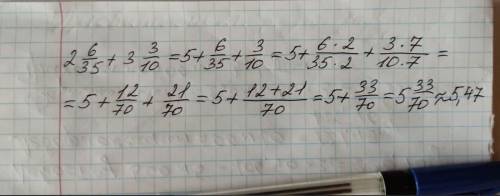 2 6/35 + 3 3/10 = 5 + 6/35 + 3/10 = 5 + 6·2/35·2 + 3·7/10·7 =
= 5 + 12/70 + 21/70 = 5 + 12+21/70 = 5 + 33/70 = 5 33/70 ≈ 5,47